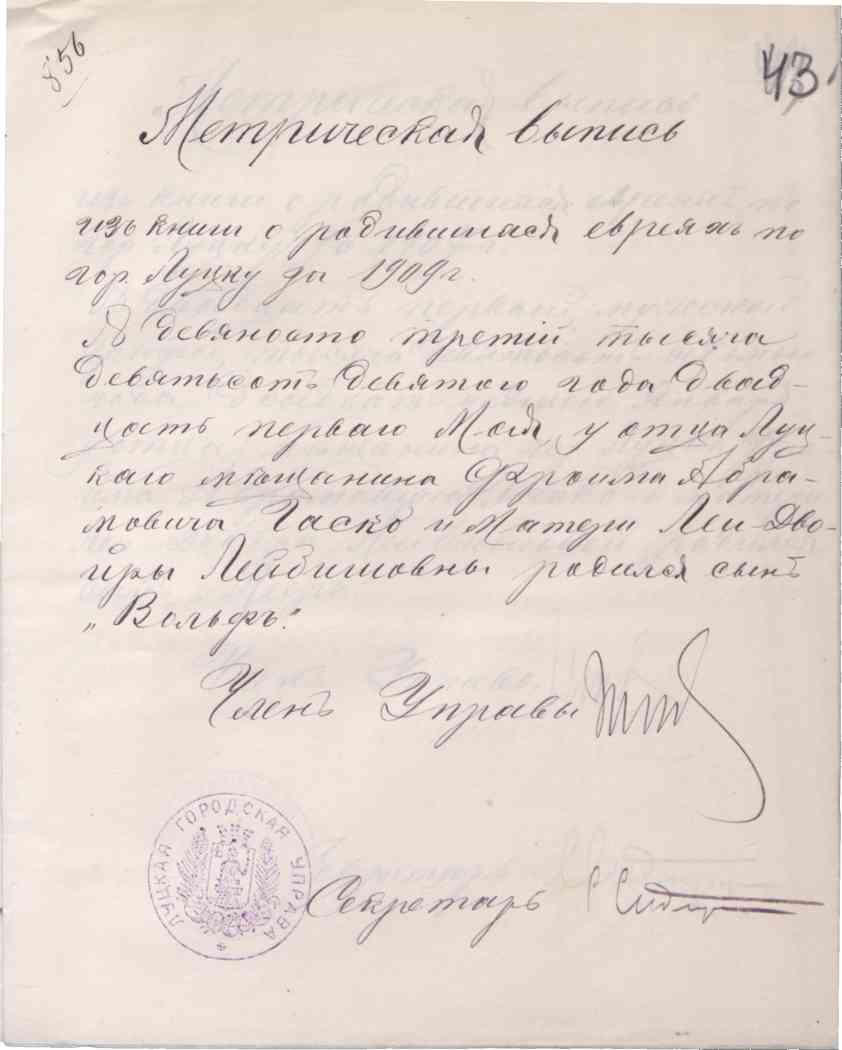 856
43
Метрическая выпись
изъ книги о родившихся евреяхъ по
гор. Луцку за 1909 г.
Девяносто третій тысяча
девятьсотъ девятого года двад-
цать перваго Мая, у отца Луц-
каго мѣщанина Фроима Абра-
мовича Гаско и матери Леи-Дво-
йры Лейбишовны родился сынъ
„Вольфъ."
Членъ Управы
ЛУЦКАЯ ГОРОДСКАЯ УПРАВА
Секретарь